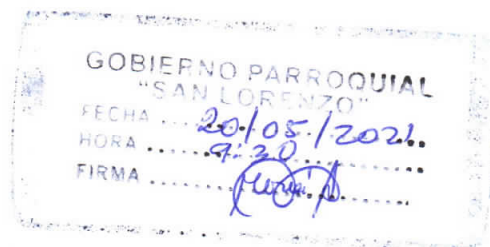 GOBIERNO PARROQUIAL
"SAN LORENZO"
FECHA ..... 20/05/2021...
HORA ..... 9:20 ..........
FIRMA ..........